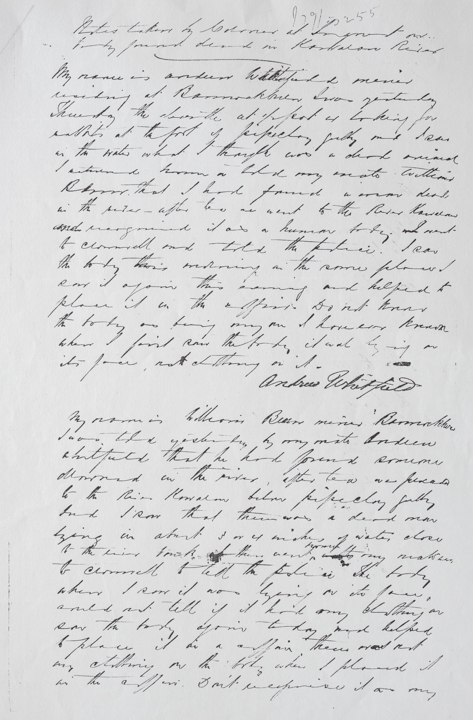 Notes taken by Coroner at Inquest on
Body found dead in Kawarau River
My name is Andrew Whitfield miner
residing at Bannockburn I was yesterday
Thursday the at past looking for
rabbits at the foot of pipeclay gully and I saw
in the water what I thought was a dead animal
I returned home & told my mate William
that I had found a man dead
in the river - after tea we went to the River Kawarau
and recognised it as a human body, went
to Cromwell and told the police. I saw
the body this morning in the same place. I
saw it again this evening and helped to
place it in the coffin. Do not know
the body as being anyone I however know
when I first saw the body, it was lying on
its face, no clothing on it.
Andrew Whitfield
My name is William miner Bannockburn
I was told yesterday by my mate Andrew
Whitfield that he had found someone
drowned in the river, after tea we
to the River Kawarau below pipeclay gully
and I saw that there was a dead man
lying in about 3 or inches of water close
to the river bank then went my mate
to Cromwell to tell the police The body
when I saw it was lying on its face,
could not tell if it had any clothing on
saw the body again today and helped
to place it in a coffin there was not
any clothing on the body when I placed it
in the coffin. Don't recognise it as any